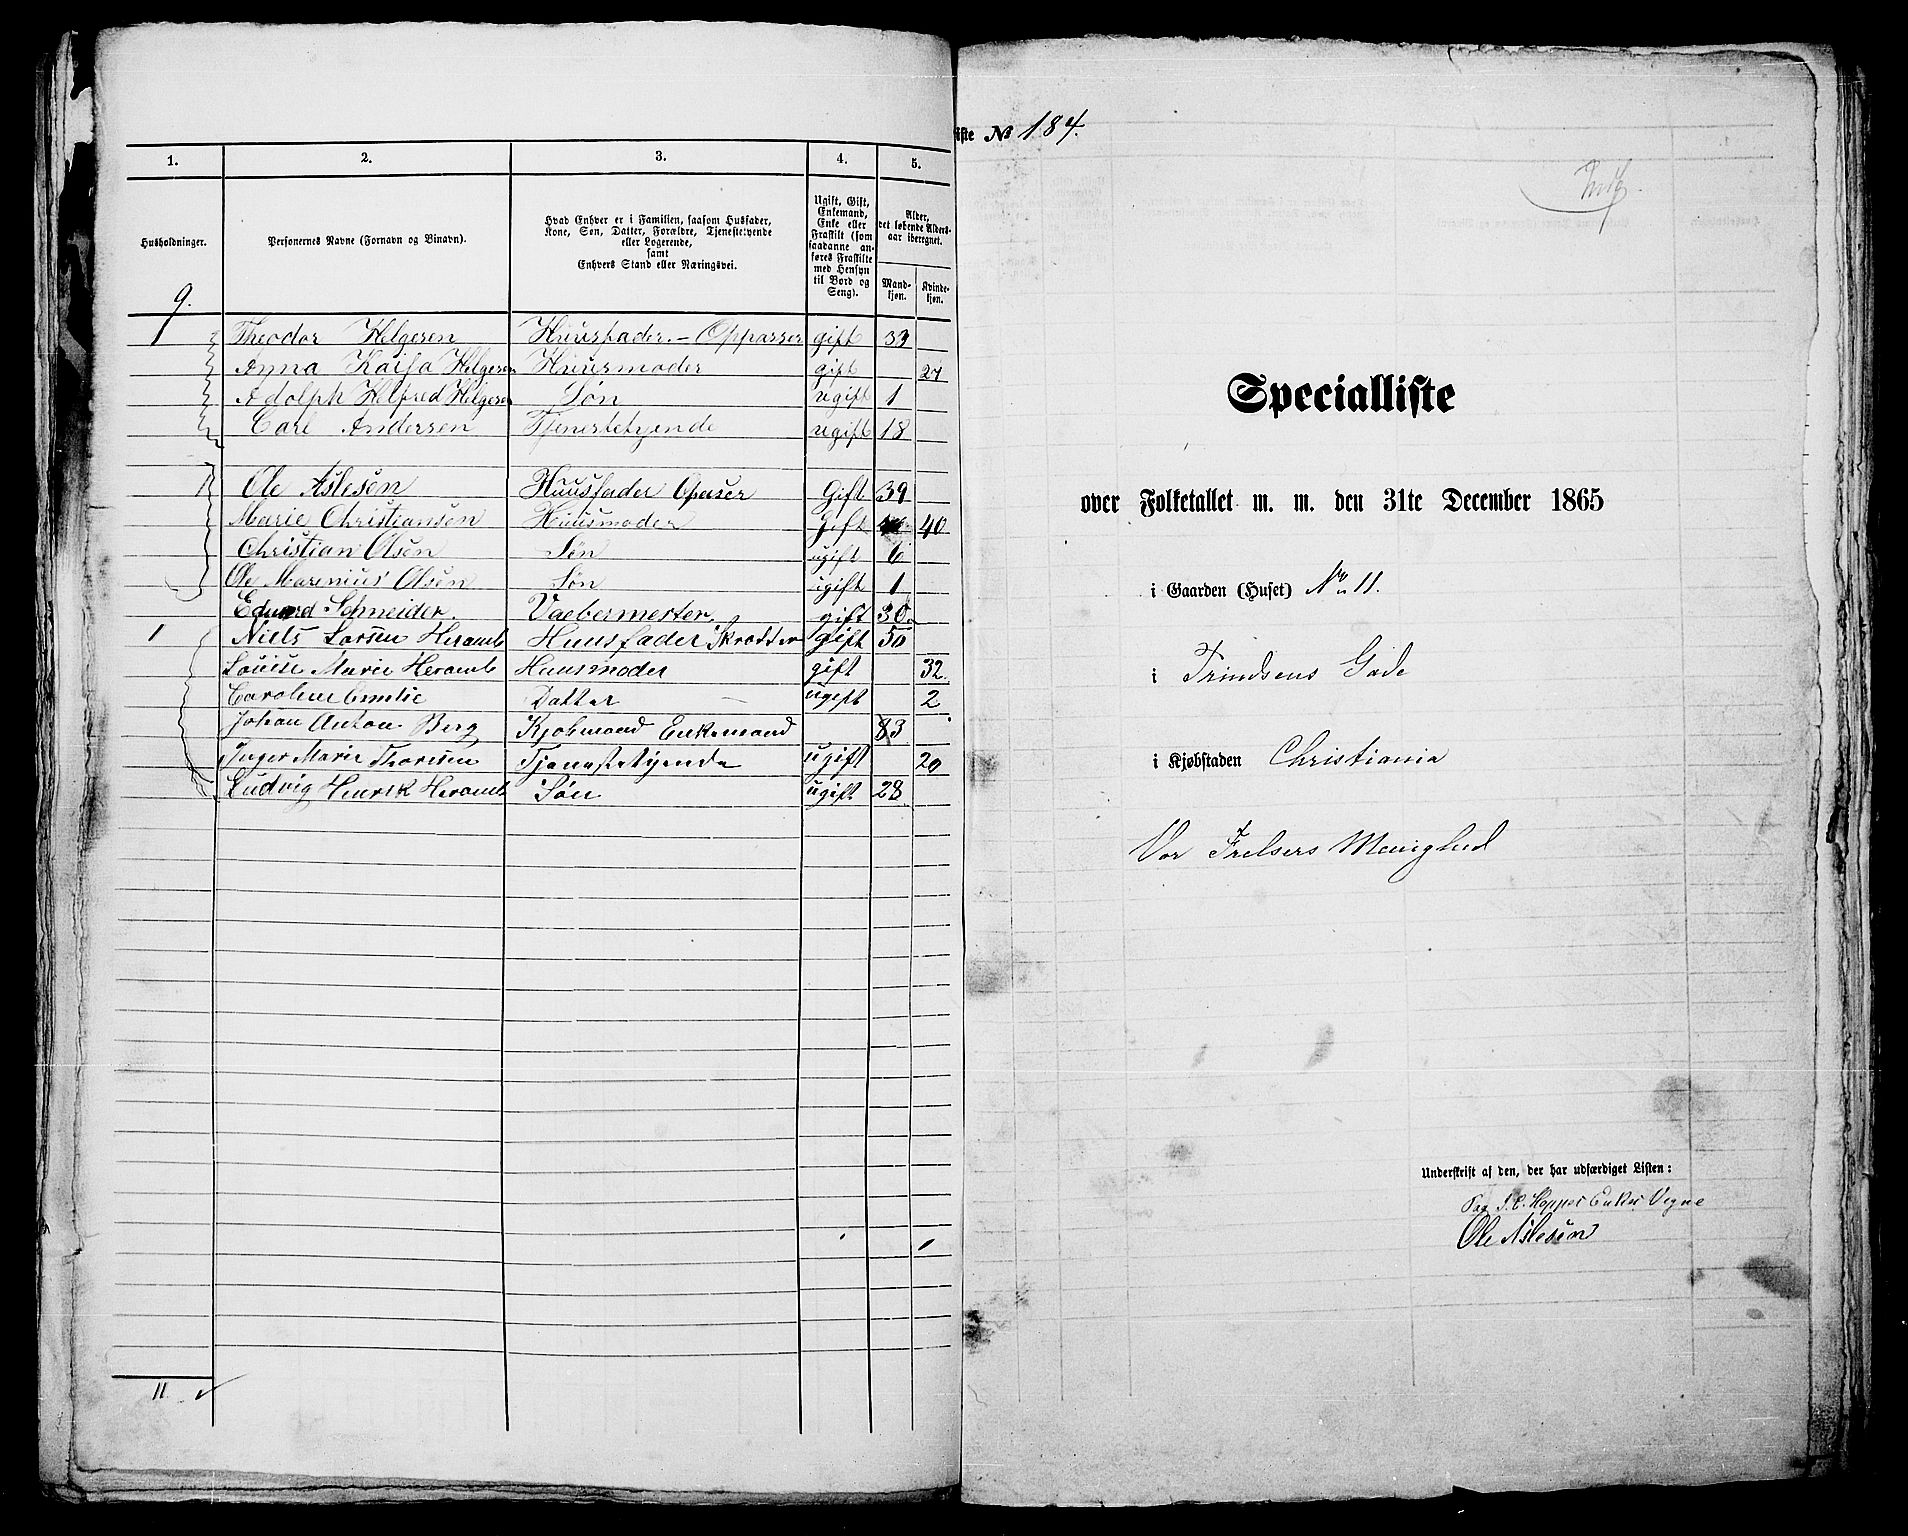 1. 2. 3. 4. 5.
Husholdninger.
Personernes Navne (Fornavn og Binavn).
Hvad Enhver er i Familien, saasom Husfader,
Kone, Søn, Datter, Forældre, Tjenestetyende
eller Logerende,
samt
Enhvers Stand eller Næringsvei.
Ugift, Gift,
Enkemand,
Enke eller
Fraskilt (som
saadanne an-
føres Fraskilte
med Hensyn
til Bord og
Seng).
Alder,
det løbende Alders-
aar iberegnet.
Mand-
kjøn.
Kvinde-
kjøn.
9.
1 Theodor Helgesen Huusfader. - Oppasser gift 33
Anna Kaisa Helgesen Huusmoder gift 27
Adolph Helfred Helgesen Søn ugift 1
Carl Andersen Tjenestetyende ugift 18
1 Ole Aslesen Huusfader Opaser Gift 39
Marie Christiansen Huusmoder Gift 40
Christian Olsen Søn ugift 6
Ole Marenius Olsen Søn ugift 1
Eduard Schneider Vaebermester gift 30
1 Niels Larsen Heramb Huusfader Skrædder gift 50
Louise Marie Heramb Huusmoder gift 32
Caroline Emilie Datter ugift 2
Johan Anton Berg Kjøbmand Enkemand 83
Inger Marie Thoresen Tjenestetyende ugift 20
Ludvig Henrik Heramb Søn ugift 28
11
iste No 184.
Specialliste
over Folketallet m. m. den 31te December 1865
i Gaarden (Huset) No 11.
i Trindsens Gade
i Kjøbstaden Christiania
Vor Frelsers Menighed
Underskrift af den, der har udfærdiget Listen:
Paa J. C. Hoppes Enkes Vegne
Ole Aslesen